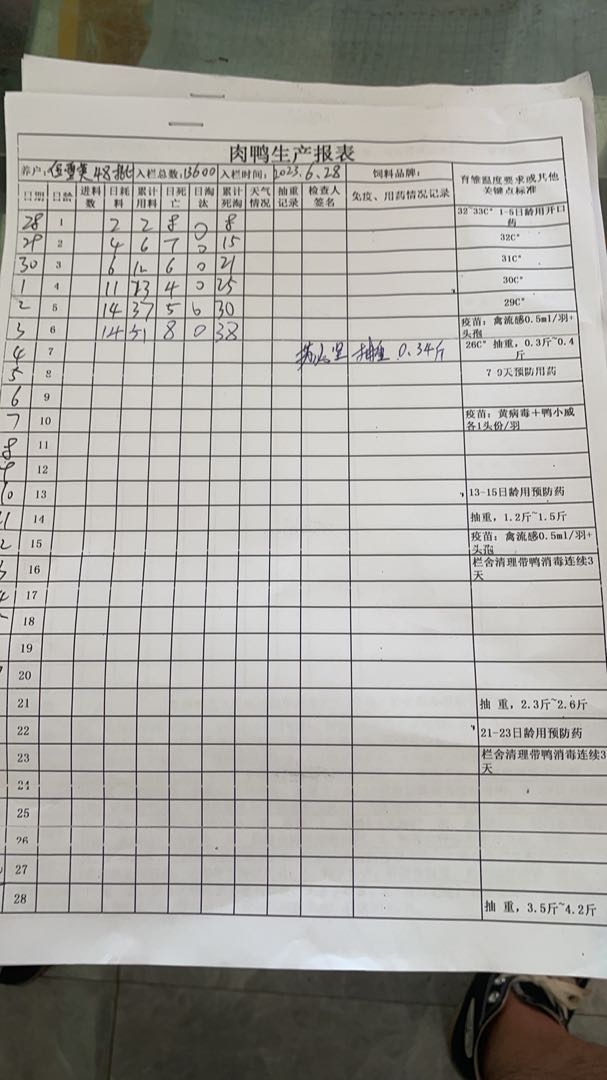 肉鸭生产报表
养户: 48批 入栏总数:13600 入栏时间:2023.6.28 饲料品牌: 育雏温度要求或其他关键点标准
日期 日龄 进料数 日耗料 累计用料 日死亡 日淘汰 累计死淘 天气情况 抽重记录 检查人签名 免疫、用药情况记录
28 1 2 2 8 0 8 32~33C° 1-5日龄用开口药
29 2 4 6 7 0 15 32C°
30 3 6 12 6 0 21 31C°
1 4 11 23 4 0 25 30C°
2 5 14 37 5 0 30 29C°
3 6 14 51 8 0 38 疫苗:禽流感0.5ml/羽+头孢
4 7 抽重 0.34斤 26C° 抽重,0.3斤~0.4斤
5 8 7-9天预防用药
6 9
7 10 疫苗:黄病毒+鸭小威各1头份/羽
8 11
9 12
10 13 13-15日龄用预防药
14 抽重,1.2斤~1.5斤
15 疫苗:禽流感0.5ml/羽+头孢
16 栏舍清理带鸭消毒连续3天
17
18
19
20
21 抽 重,2.3斤~2.6斤
22 21-23日龄用预防药
23 栏舍清理带鸭消毒连续3天
24
25
26
27
28 抽 重,3.5斤~4.2斤